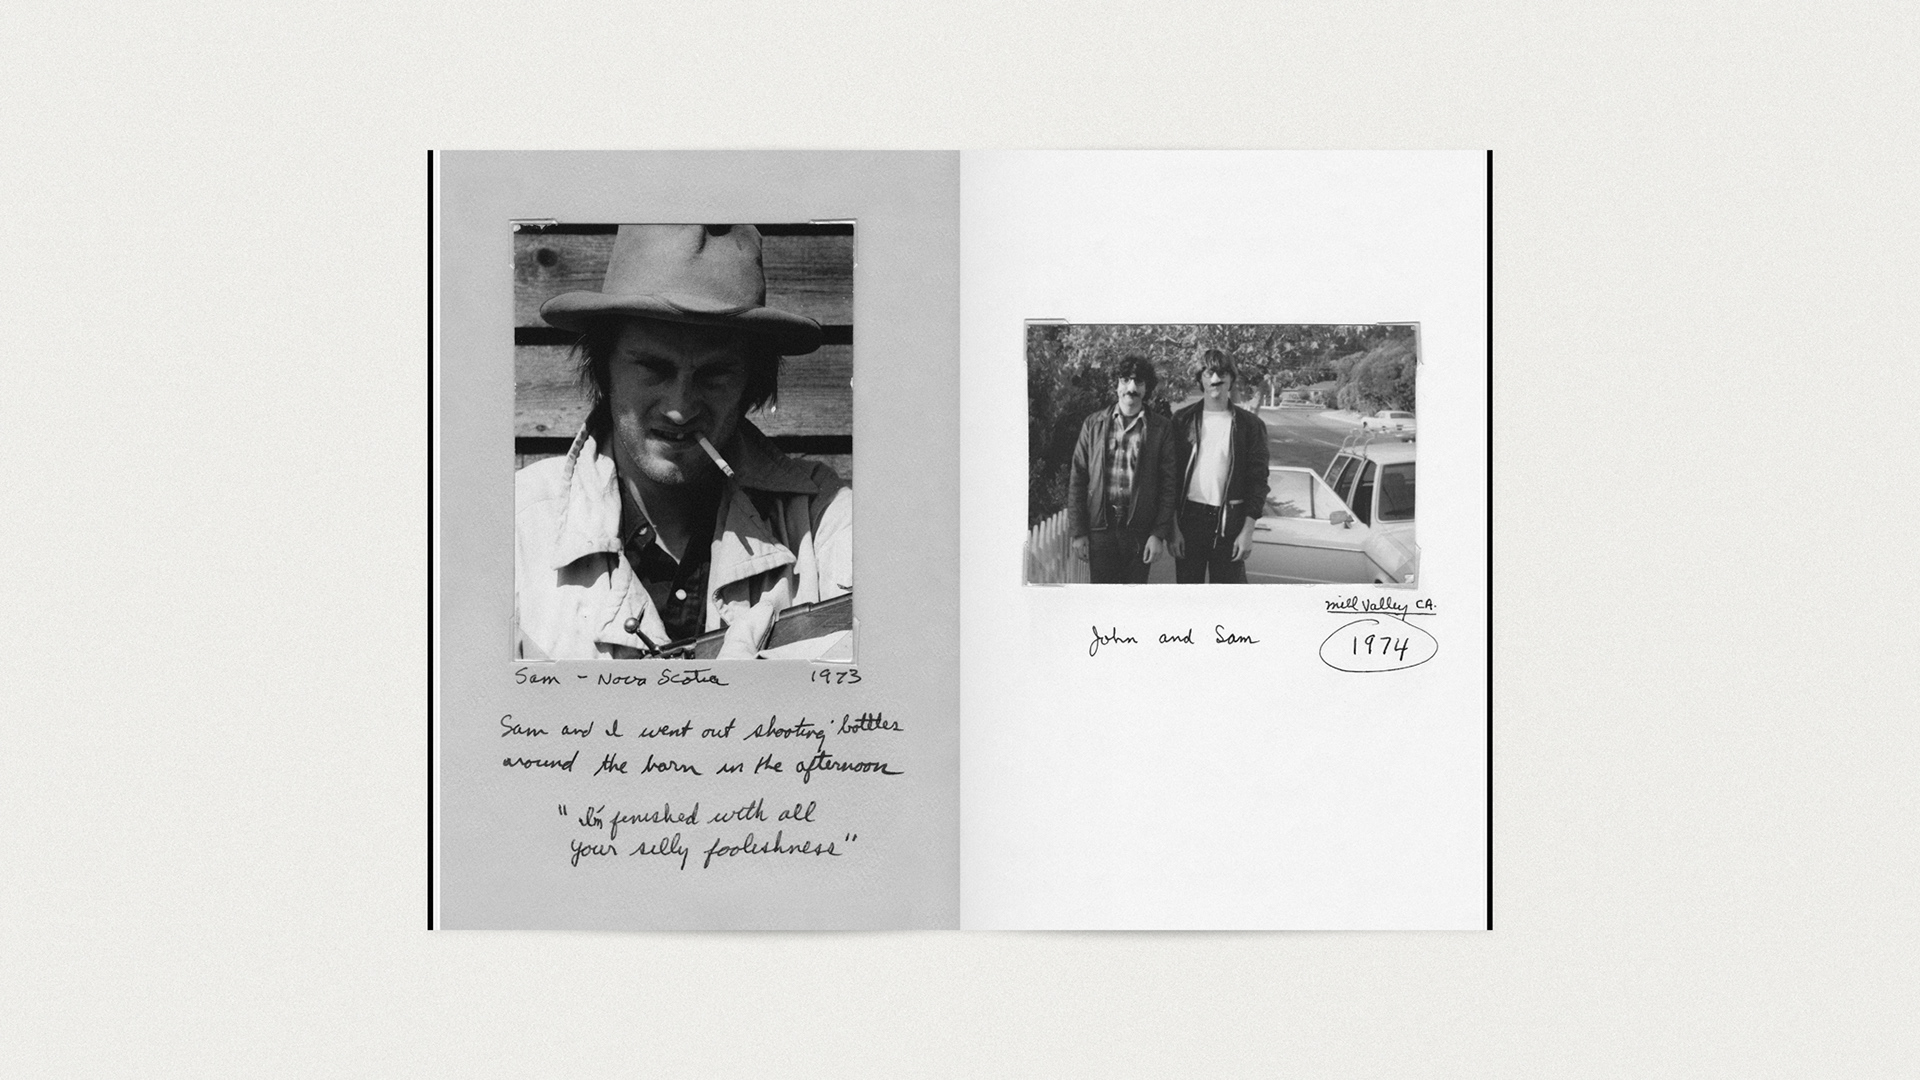 Sam - Nova Scotia 1973
Sam and I went out shooting bottles
around the barn in the afternoon
"I'm finished with all
your silly foolishness"
Mill Valley CA.
John and Sam
1974